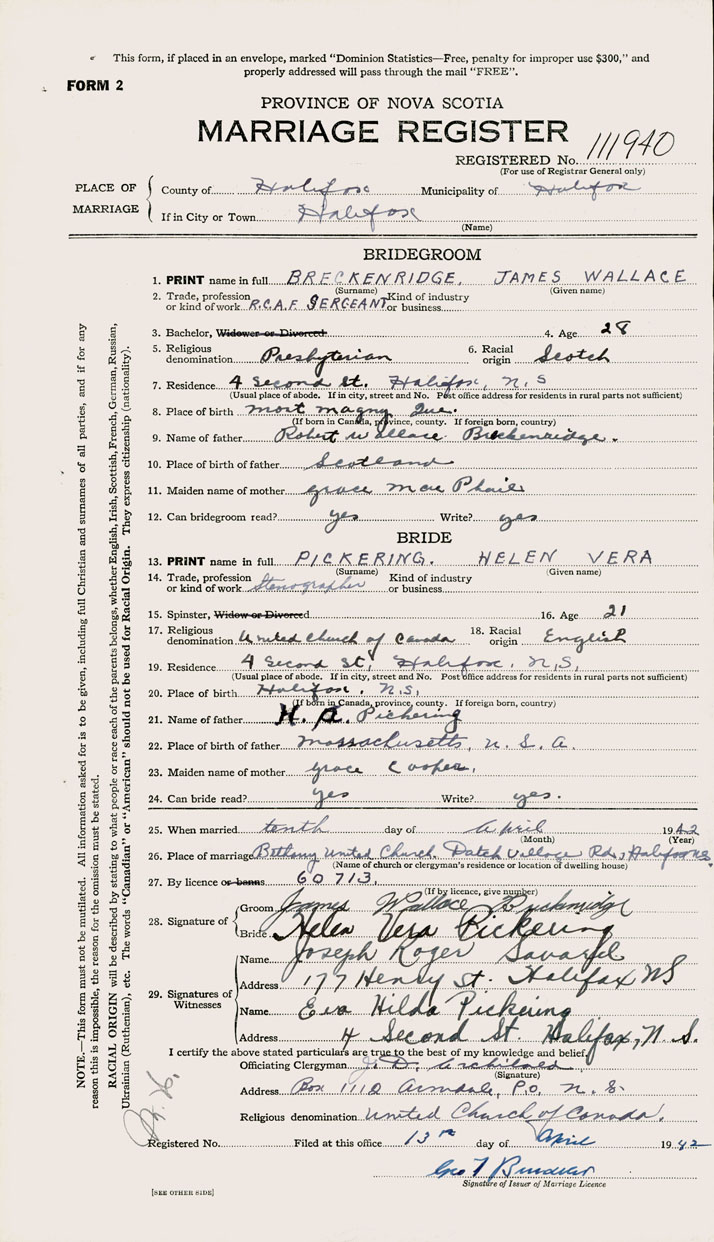 This form, if placed in an envelope, marked "Dominion Statistics—Free, penalty for improper use $300," and
properly addressed will pass through the mail "FREE".
FORM 2
PROVINCE OF NOVA SCOTIA
MARRIAGE REGISTER
REGISTERED No. 111940
(For use of Registrar General only)
PLACE OF MARRIAGE
County of Halifax Municipality of Halifax
If in City or Town Halifax
(Name)
BRIDEGROOM
1. PRINT name in full BRECKENRIDGE, JAMES WALLACE
(Surname) (Given name)
2. Trade, profession or kind of work R.C.A.F. SERGEANT Kind of industry or business
3. Bachelor, Widower or Divorced 4. Age 28
5. Religious denomination Presbyterian 6. Racial origin Scotch
7. Residence 4 Second St. Halifax, N.S
(Usual place of abode. If in city, street and No. Post office address for residents in rural parts not sufficient)
8. Place of birth Mont Magny Que.
(If born in Canada, province, county. If foreign born, country)
9. Name of father Robert Wallace Breckenridge.
10. Place of birth of father Scotland
11. Maiden name of mother Grace Mac Phail
12. Can bridegroom read? yes Write? yes
BRIDE
13. PRINT name in full PICKERING. HELEN VERA
(Surname) (Given name)
14. Trade, profession or kind of work Stenographer Kind of industry or business
15. Spinster, Widow or Divorced 16. Age 21
17. Religious denomination United Church of Canada 18. Racial origin English
19. Residence 4 Second St, Halifax, N.S,
(Usual place of abode. If in city, street and No. Post office address for residents in rural parts not sufficient)
20. Place of birth Halifax, N.S,
(If born in Canada, province, county. If foreign born, country)
21. Name of father H. A. Pickering
22. Place of birth of father Massachusetts, U.S.A.
23. Maiden name of mother Grace Cooper.
24. Can bride read? yes Write? yes.
25. When married tenth day of April 1942
(Month) (Year)
26. Place of marriage Bethany United Church, Dutch Village Rd., Halifax N.S.
(Name of church or clergyman's residence or location of dwelling house)
27. By licence or banns 60713,
(If by licence, give number)
28. Signature of
Groom James Wallace Breckenridge
Bride Helen Vera Pickering
29. Signatures of Witnesses
Name Joseph Roger
Address 177 Henry St. Halifax NS
Name Eva Hilda Pickering
Address 4 Second St. Halifax, N.S.
I certify the above stated particulars are true to the best of my knowledge and belief.
Officiating Clergyman J. D. Archibald
(Signature)
Address Box 1110 Armdale, P.O. N.S.
Religious denomination United Church of Canada.
Registered No. Filed at this office 13th day of April 1942
Signature of Issuer of Marriage Licence
[SEE OTHER SIDE]
NOTE.—This form must not be mutilated. All information asked for is to be given, including full Christian and surnames of all parties, and if for any
reason this is impossible, the reason for the omission must be stated.
RACIAL ORIGIN will be described by stating to what people or race each of the parents belongs, whether English, Irish, Scottish, French, German, Russian,
Ukrainian (Ruthenian), etc. The words "Canadian" or "American" should not be used for Racial Origin. They express citizenship (nationality).